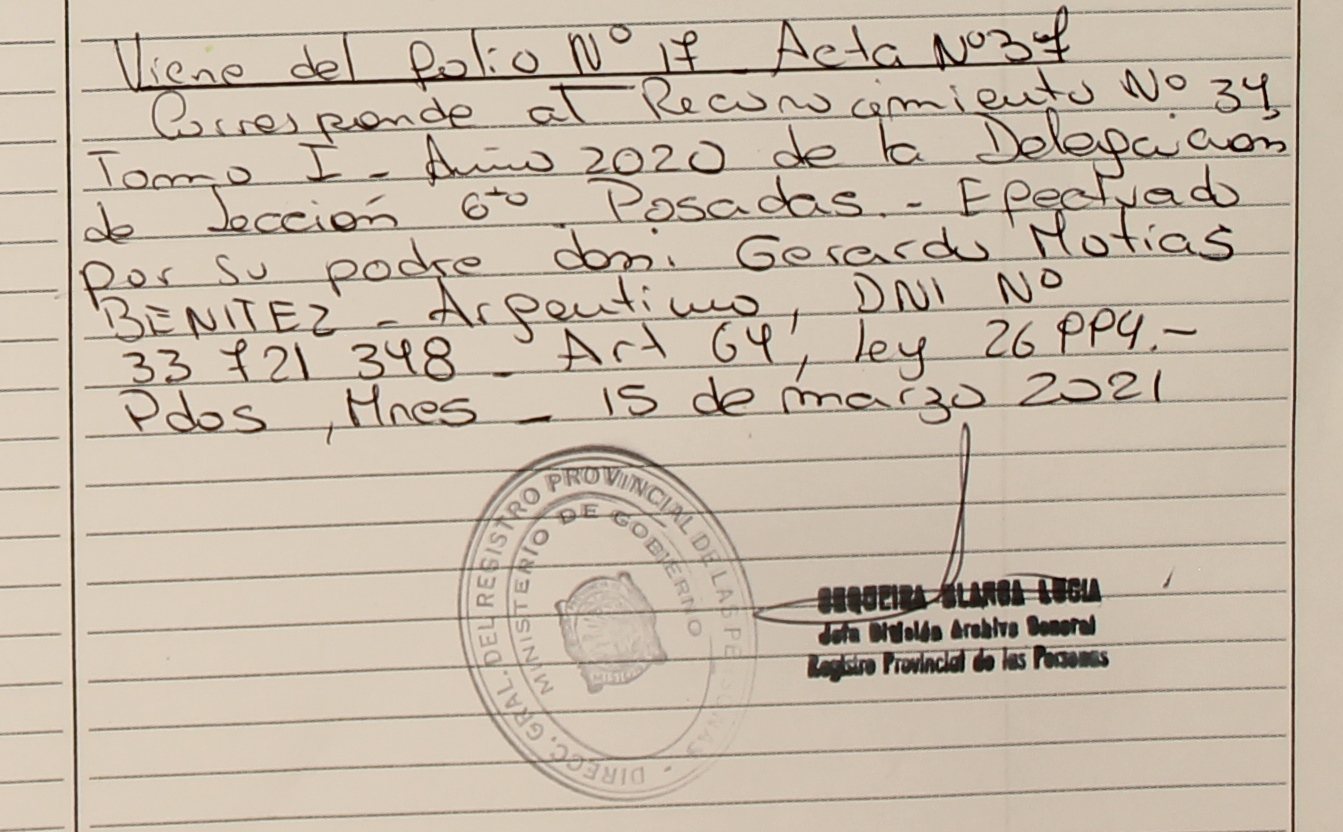 Viene del folio Nº 17 Acta Nº 37
Corresponde al Reconocimiento Nº 34,
Tomo I - Año 2020 de la Delegación
de Sección 6ta Posadas. - Efectuado
por su padre don: Gerardo Matias
BENITEZ - Argentino, DNI Nº
33 721 348 - Art 64, ley 26 994.-
Pdas, Mnes - 15 de marzo 2021
DIRECC. GRAL. DEL REGISTRO PROVINCIAL DE LAS PERSONAS
MINISTERIO DE GOBIERNO
SEQUEIRA BLANCA LUCIA
Jefa División Archivo General
Registro Provincial de las Personas